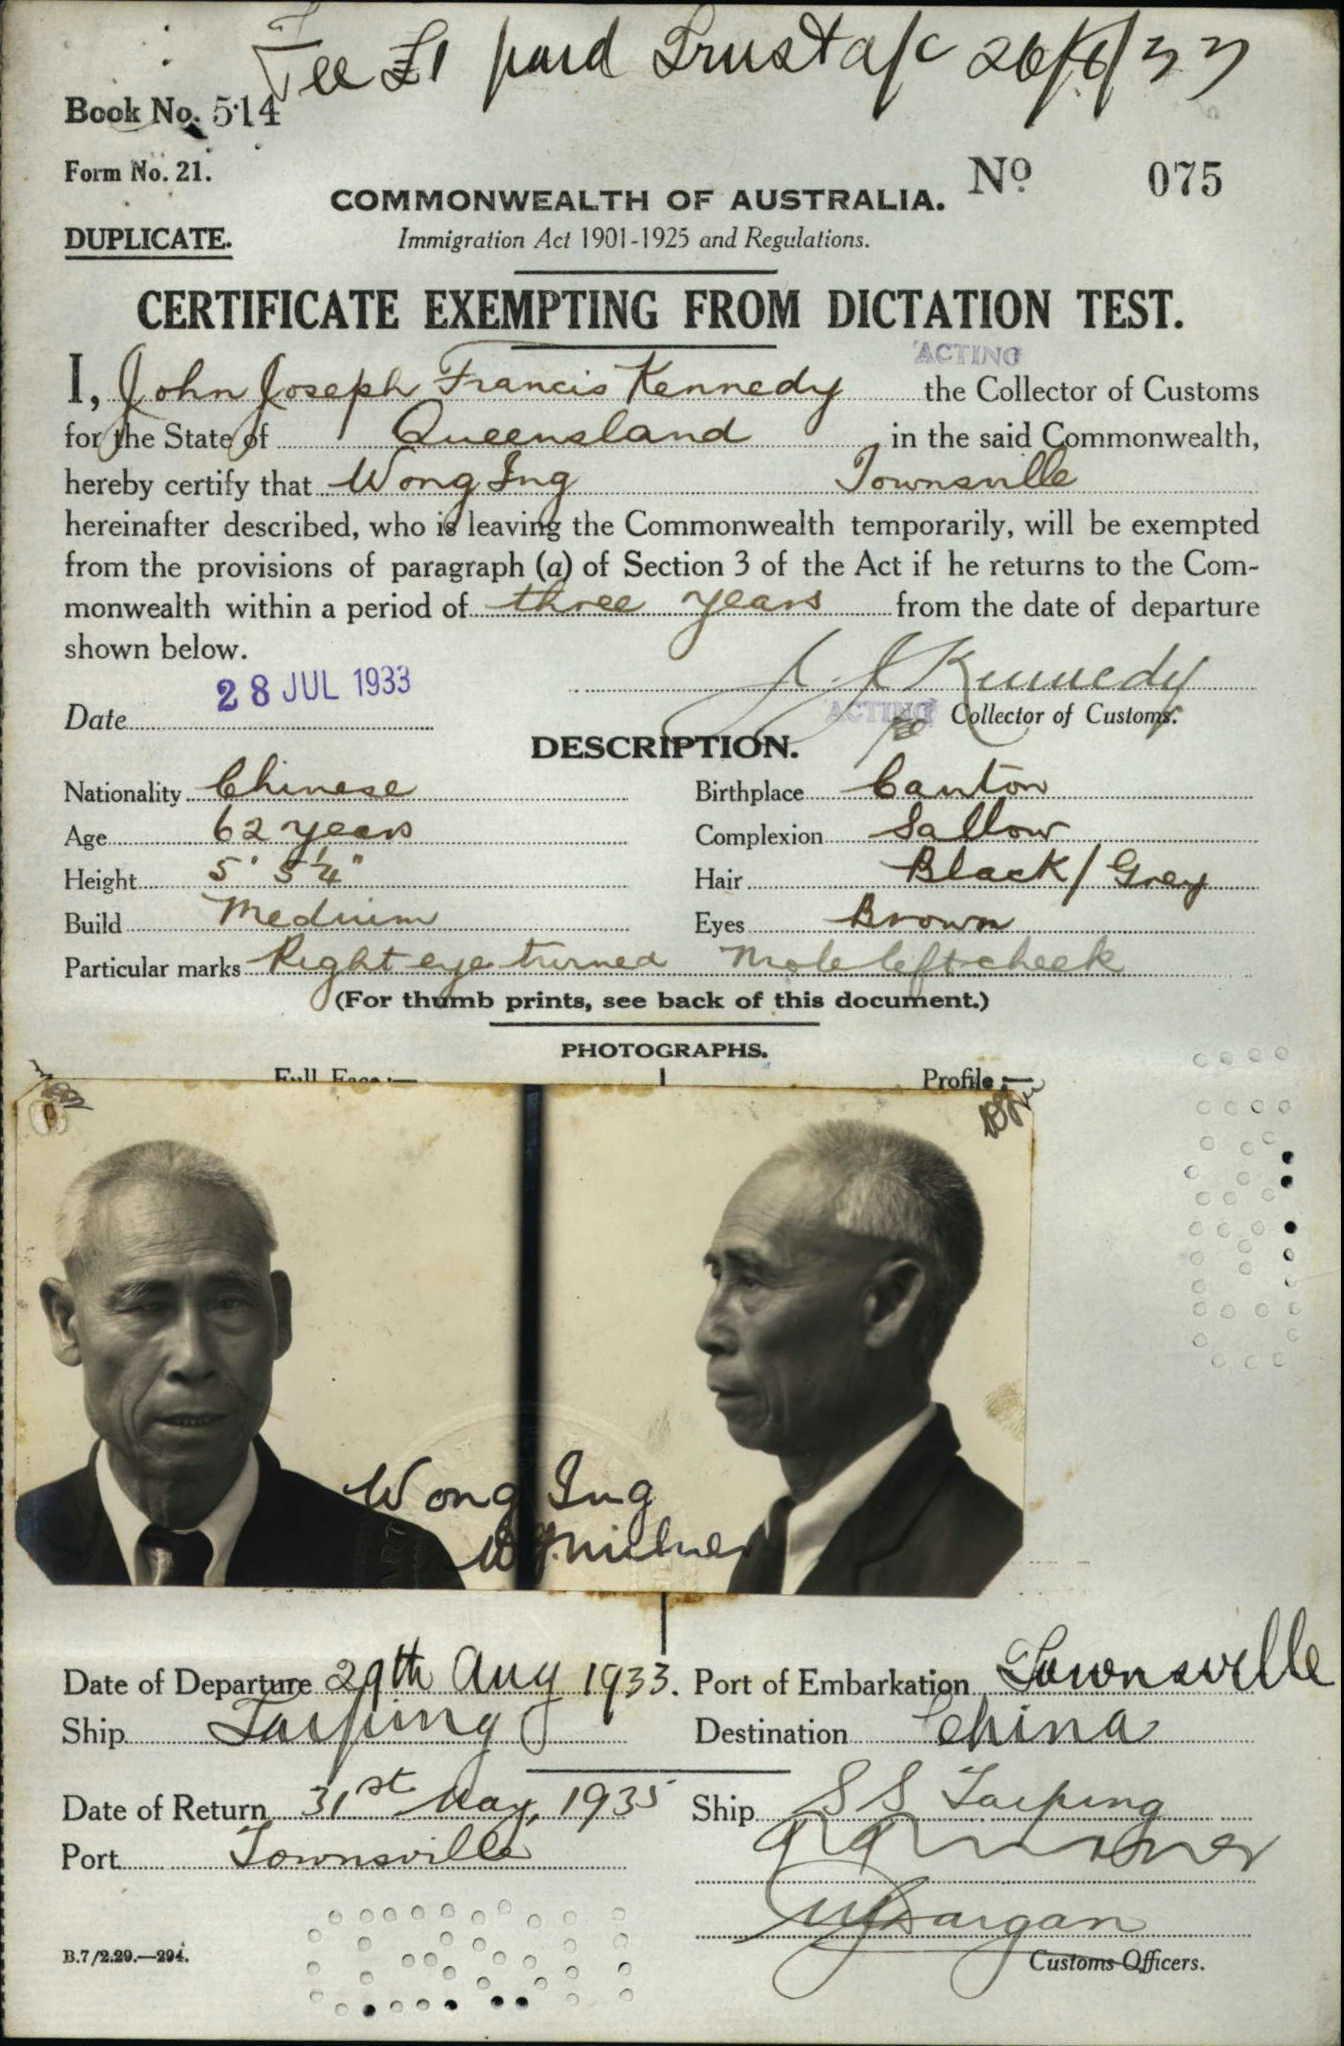 Fee £1 paid Trust a/c 26/8/33
Book No. 514
Form No. 21.
No 075
COMMONWEALTH OF AUSTRALIA.
DUPLICATE.
Immigration Act 1901-1925 and Regulations.
CERTIFICATE EXEMPTING FROM DICTATION TEST.
ACTING
I, John Joseph Francis Kennedy the Collector of Customs
for the State of Queensland in the said Commonwealth,
hereby certify that Wong Ing Townsville
hereinafter described, who is leaving the Commonwealth temporarily, will be exempted
from the provisions of paragraph (a) of Section 3 of the Act if he returns to the Com-
monwealth within a period of three years from the date of departure
shown below.
J J Kennedy
Date 28 JUL 1933
ACTING Collector of Customs.
DESCRIPTION.
Nationality Chinese Birthplace Canton
Age 62 years Complexion Sallow
Height 5' 5¼" Hair Black/Grey
Build Medium Eyes Brown
Particular marks Right eye turned Mole left cheek
(For thumb prints, see back of this document.)
PHOTOGRAPHS.
Full Face:— Profile:—
Wong Ing
Date of Departure 29th Aug 1933. Port of Embarkation Townsville
Ship Taiping Destination China
Date of Return 31st May, 1935 Ship SS Taiping
Port Townsville
B.7/2.29.—294.
Customs Officers.